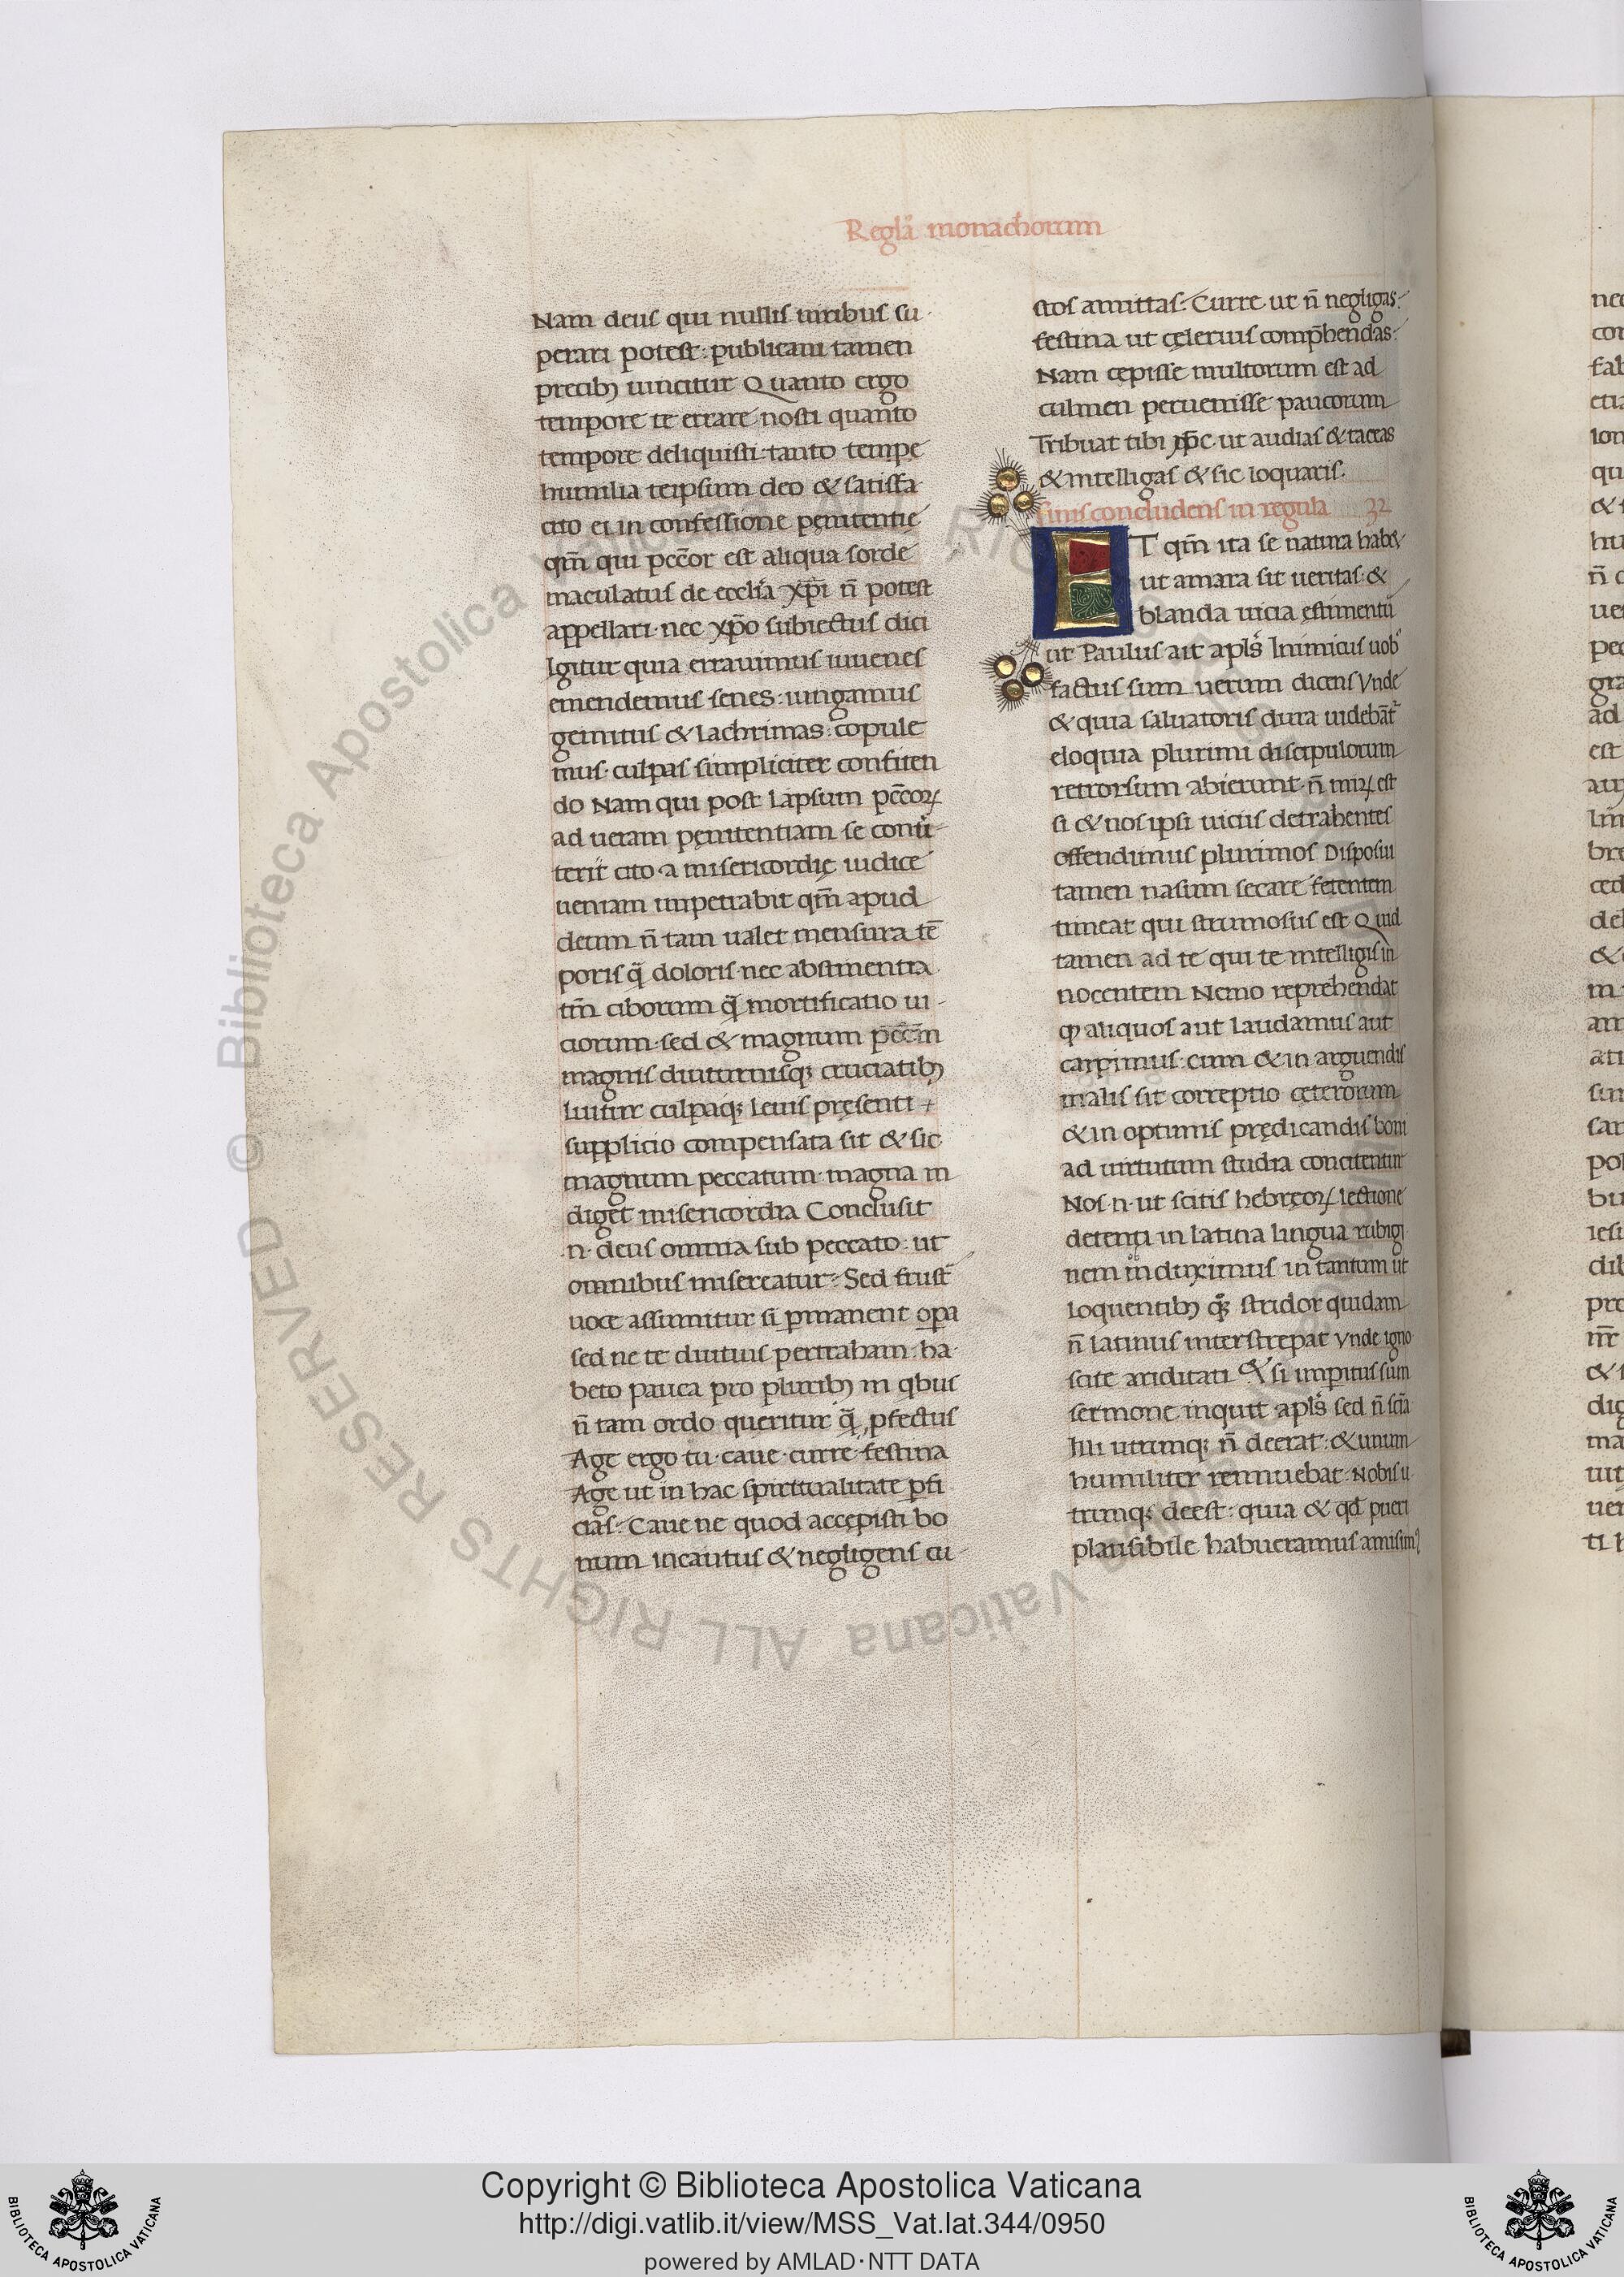 Regla᷑ monachorum
Nam deus qui nullis uiribus su
perari potest: publicani tamen
precibꝫ uincitur Quanto ergo
tempore te errare nosti quanto
tempore deliquisti· tanto tempe
humilia teipsum deo & satisfa
cito ei in confessione pęnitentię
qm̄ qui pecc̄or est aliqua sorde
maculatus de eccl̓ia xp̄i n̄ potest
appellari· nec xp̄o subiectus dici
Igitur quia errauimus iuuenes
emendemus senes: iungamus
gemitus & lachrimas: copule
mus· culpas simpliciter confiten
do Nam qui post lapsum pcc̄oꝝ
ad ueram pęnitentiam se conu̓
terit cito· a misericordię iudice
ueniam impetrabit qm̄ apud
deum n̄ tam ualet mensura tē
poris q̄ doloris· nec abstinentia
tm̄ ciborum q̄ mortificatio ui-
ciorum· sed & magnum pecc̄m
magnis diuturnisqꝫ cruciatibꝫ
luitur culpaqꝫ leuis pręsenti
supplicio compensata sit & sic
magnum peccatum· magna in
diget misericordia Conclusit
.n. deus omnia sub peccato: ut
omnibus misereatur: Sed frust̄
uoce assumitur si ꝑmanent oꝑa
sed ne te diutius pertraham: ha
beto pauca pro pluribꝫ in qbus
n̄ tam ordo queritur q̄, ꝓfectus
Age ergo tu· caue· curre· festina
Age ut in hac spiritualitate ꝑfi
cias: Caue ne quod accępisti bo
num incautus & negligens cu
stos amittas: Curre ut n̄ negligas:
festina ut cęlerius comp̄hendas:
Nam cępisse multorum est ad
culmen peruenisse paucorum
Tribuat tibi xp̄c ut audias & taceas
& intelligas & sic loquaris:
finis concludens in regula 32
ET qm̄ ita se natura habet
ut amara sit ueritas· &
blanda uicia ęstimentur̄
ut Paulus ait apl̓s Inimicus uob̓
factus sum uerum dicens Vnde
& quia saluatoris dura uidebāt᷑
eloquia plurimi discipulorum
retrorsum abierunt· n̄ miꝝ est
si & nos ipsi uiciis detrahentes
offendimus plurimos Disposui
tamen nasum secare fetentem
timeat qui strumosus est Quid
tamen ad te qui te intelligis in
nocentem Nemo reprehendat
ꝙ aliquos aut laudamus aut
carpimus: cum & in arguendis
malis sit correptio cęterorum
& in optimis prędicandis boni
ad uirtutum studia concitentur
Nos ·n· ut scitis hebręoꝝ lectione
detenti in latina lingua rubigi
nem induximus in tantum ut
loquentibꝫ qꝫ stridor quidam
n̄ latinus interstrepat Vnde igno
scite ariditati & si imꝑitus sum
sermone inquit apl̓s sed n̄ sci̅a
Illi utrumqꝫ n̄ deerat: & unum
humiliter rennuebat· Nobis u
trumqꝫ deest: quia & qd̄ pueri
plausibile habueramus amisim̓
Copyright © Biblioteca Apostolica Vaticana
http://digi.vatlib.it/view/MSS_Vat.lat.344/0950
powered by AMLAD·NTT DATA